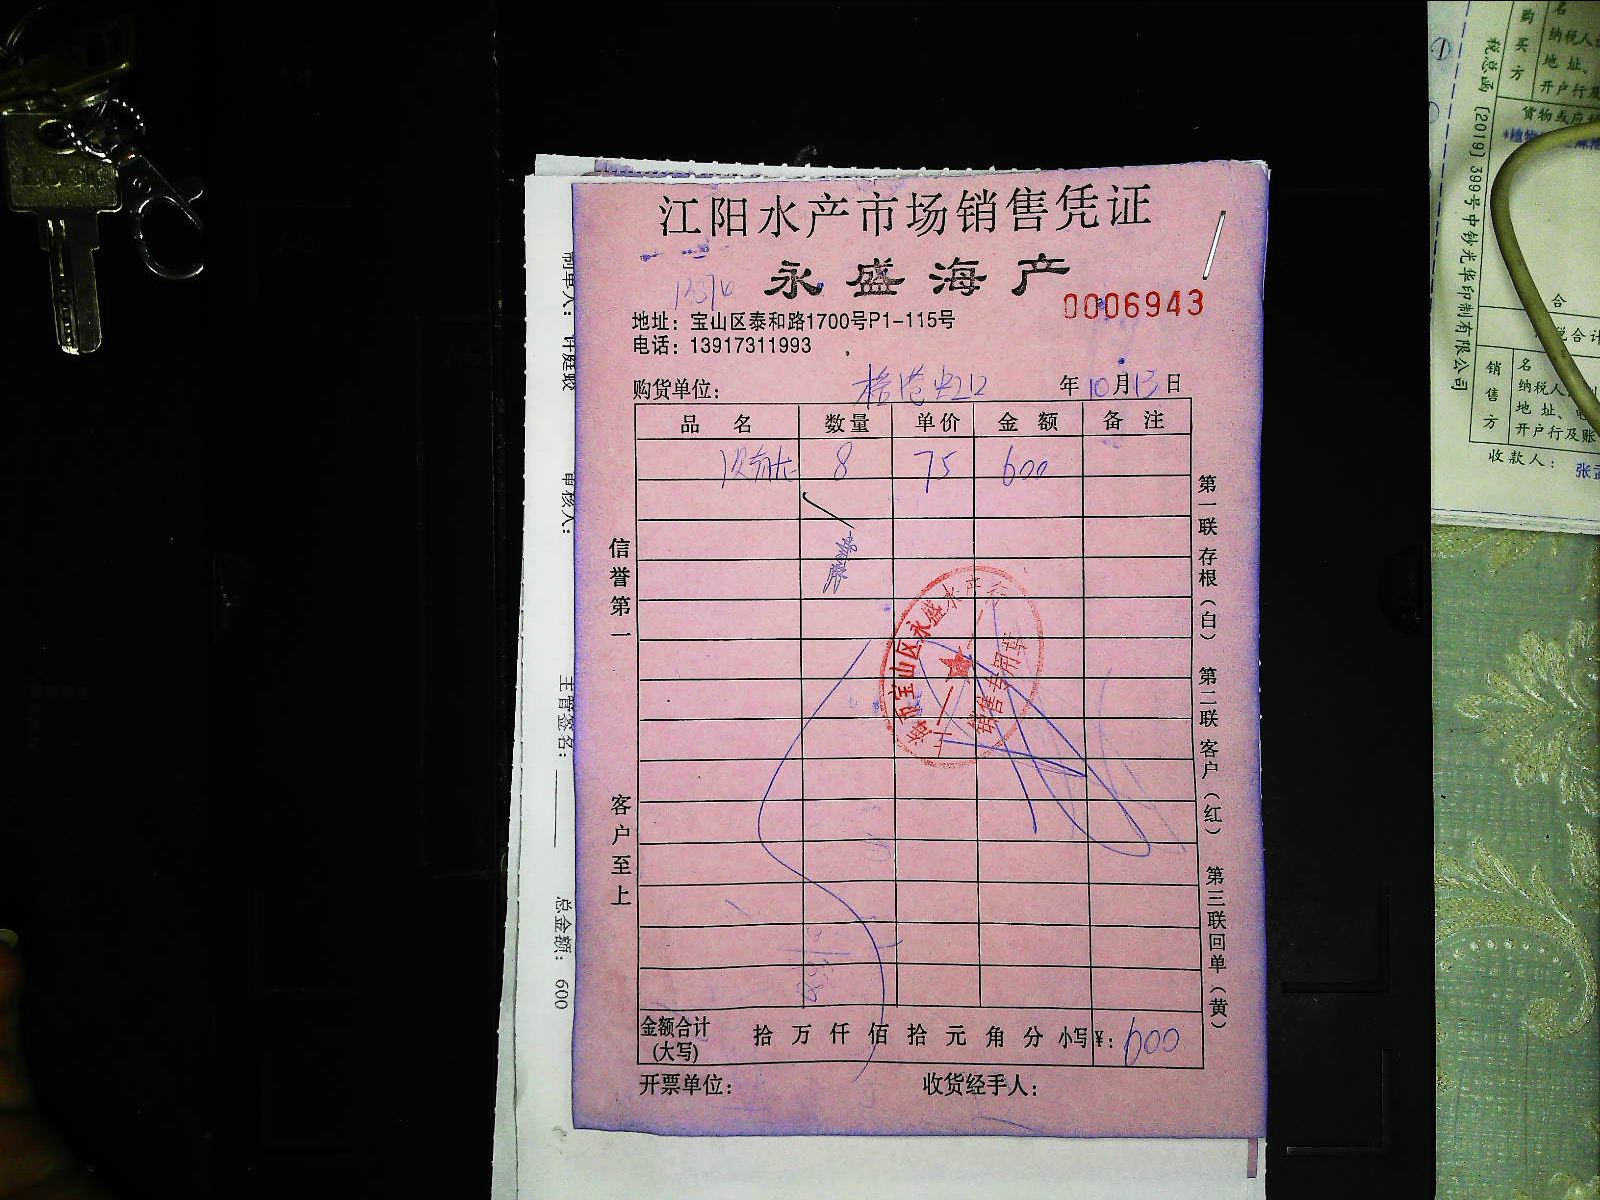 江阳水产市场销售凭证
永盛海产
0006943
地址：宝山区泰和路1700号P1-115号
电话：13917311993
购货单位：
年10月13日
品名 数量 单价 金额 备注
8 75 600
信誉第一
客户至上
第一联 存根（白） 第二联 客户（红） 第三联 回单（黄）
上海市宝山区永盛水产行
销售专用章
金额合计(大写) 拾 万 仟 佰 拾 元 角 分 小写¥：600
开票单位： 收货经手人：
制单人：
审核人：
主管签名：
总金额：600
税总函〔2019〕399号中钞光华印制有限公司
购买方
名
纳税人
地址、
开户行及
货物或应
合
税合计
销售方
名
纳税人
地址、电
开户行及账
收款人：